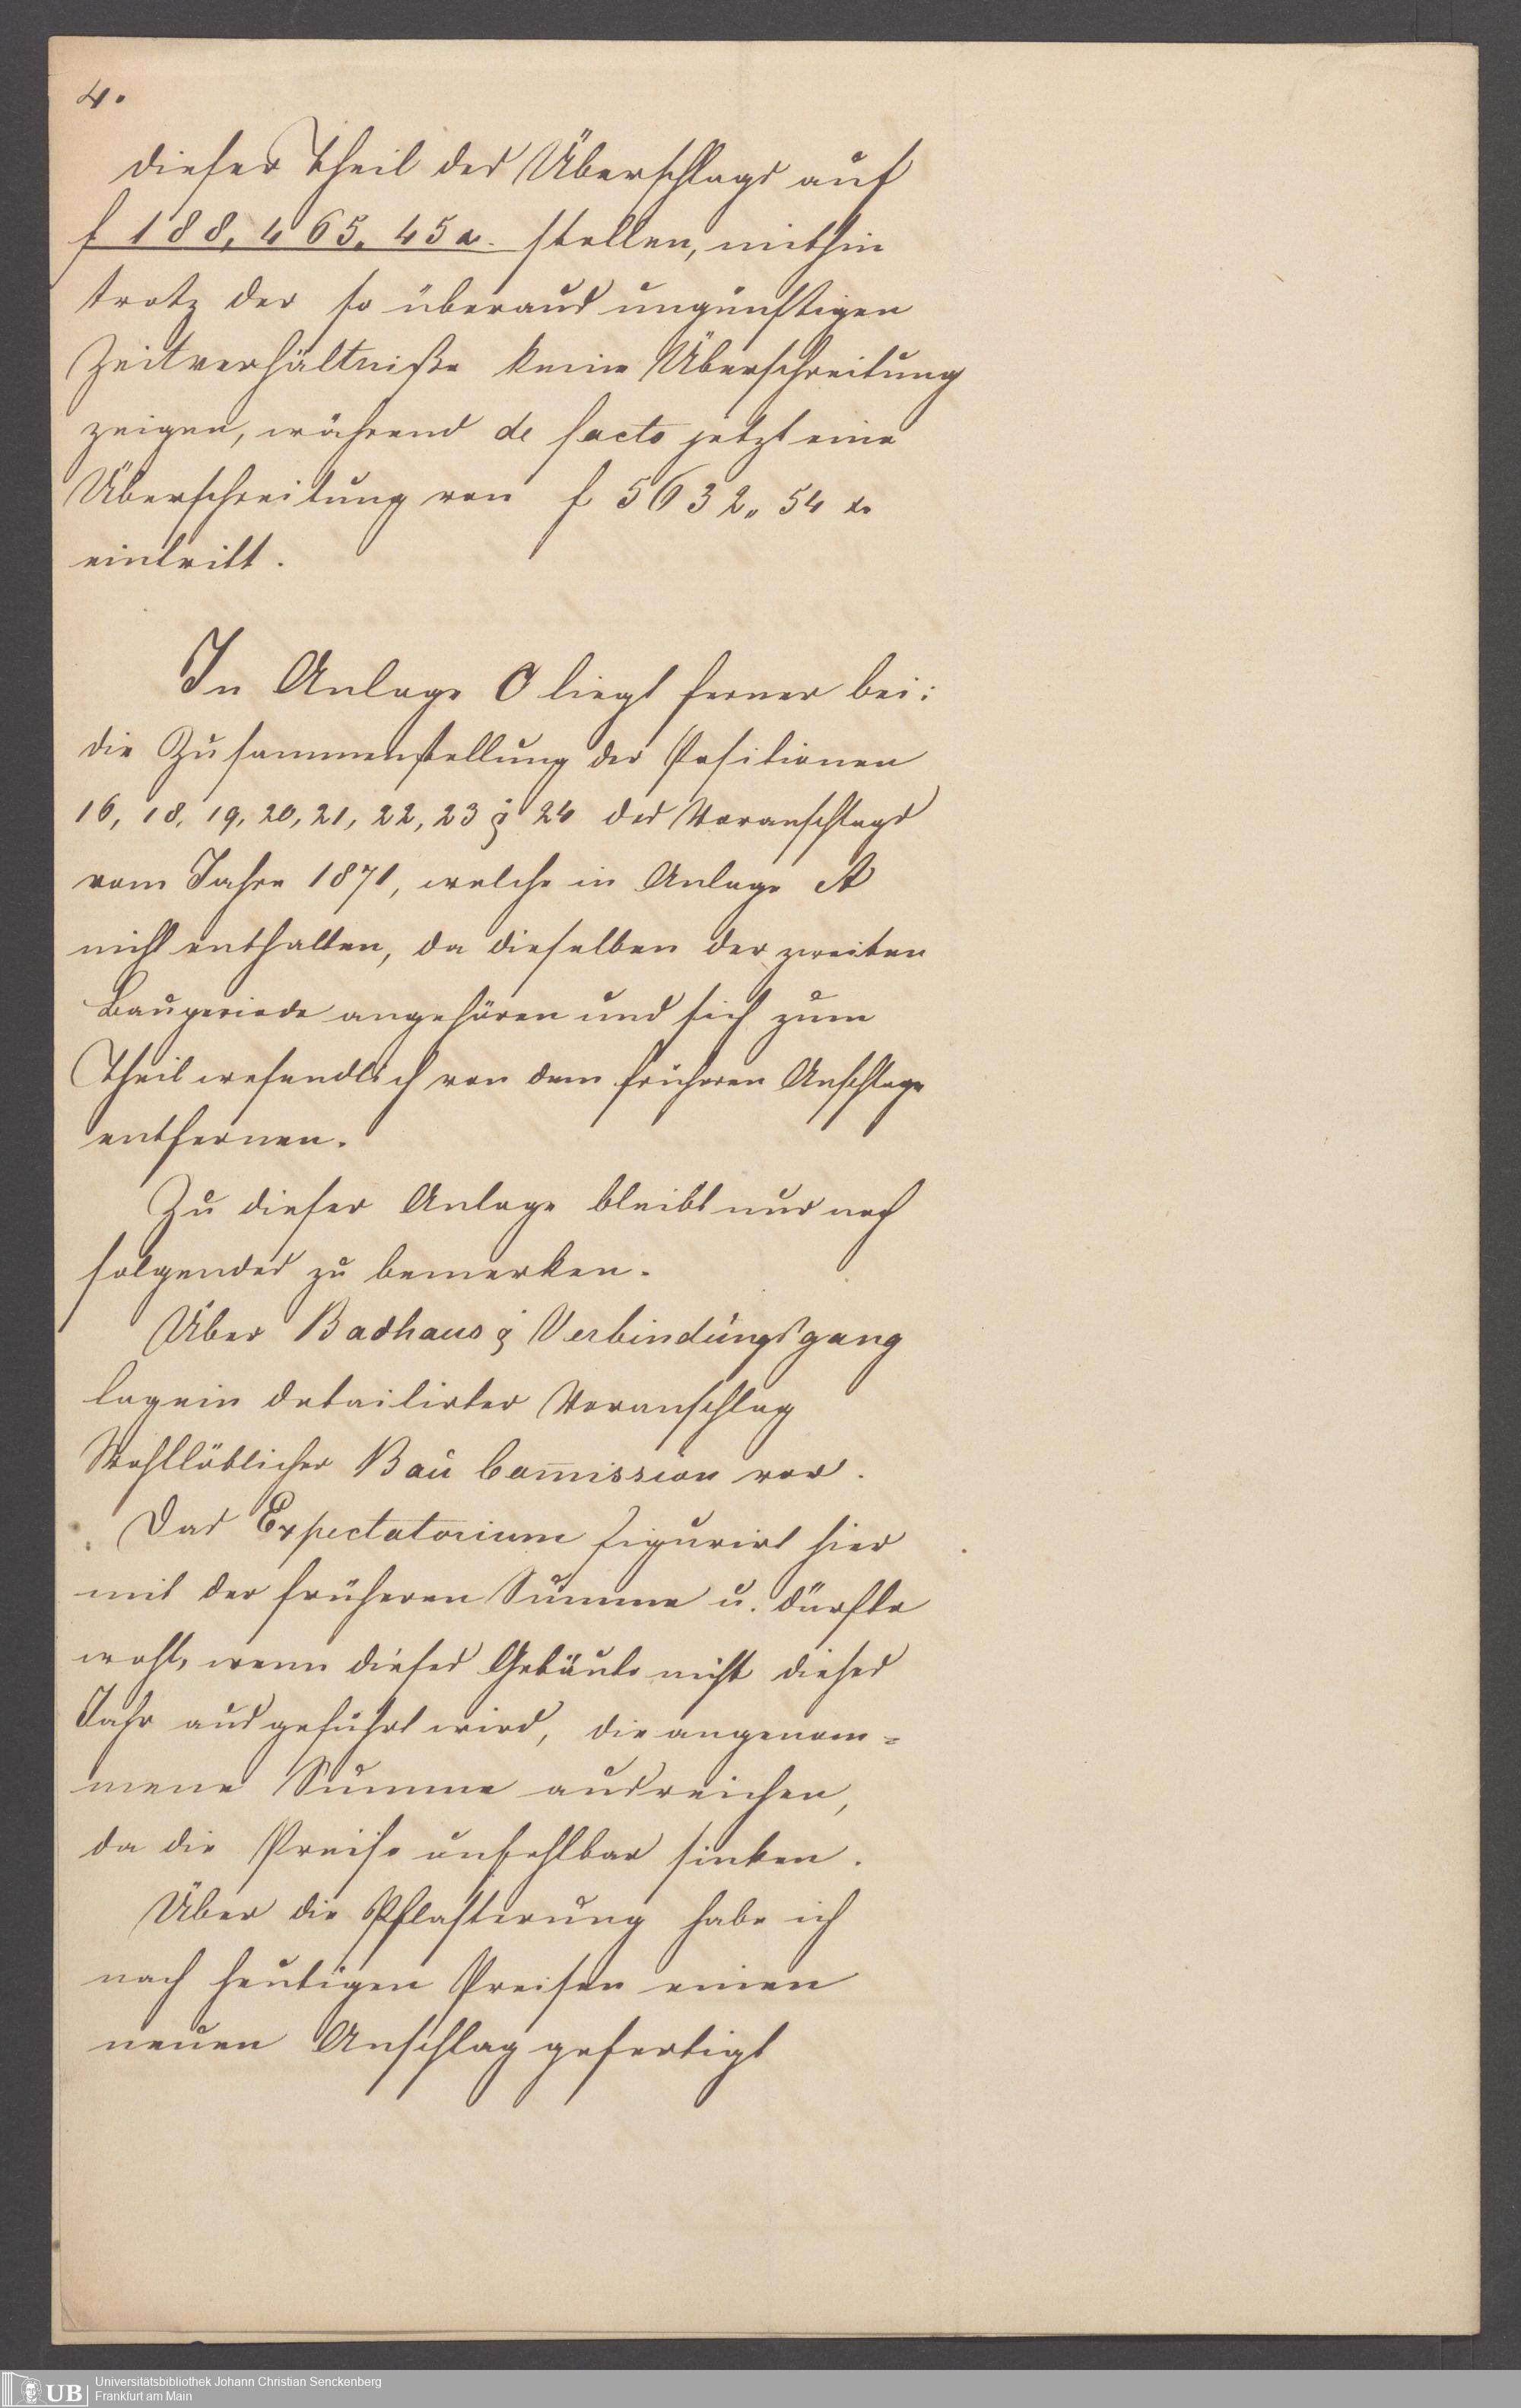 4.
dieser Theil des Überschlags auf
f 188,465. 45 x. stellen, mithin
trotz der so überaus ungünstigen
Zeitverhältniße keine Überschreitung
zeigen, während de facto jetzt eine
Überschreitung von f 5632„ 54 x.
eintritt.
In Anlage O liegt ferner bei:
die Zusammenstellung der Positionen
16, 18, 19, 20, 21, 22, 23 & 24 des Voranschlags
vom Jahre 1871, welche in Anlage A
nicht enthalten, da dieselben der zweiten
Bauperiode angehören und sich zum
Theil wesendlich von dem früheren Anschlage
entfernen.
Zu dieser Anlage bleibt nur noch
folgendes zu bemerken.
Über Badhaus & Verbindungsgang
lag ein detailirter Voranschlag
Wohllöblicher Bau Com̄ission vor.
Das Expectatorium figurirt hier
mit der früheren Summe u. dürfte
wohl, wenn dieses Gebäude nicht dieses
Jahr ausgeführt wird, die angenom=
mene Summe ausreichen,
da die Preise unfehlbar sinken.
Über die Pflasterung habe ich
nach heutigen Preisen einen
neuen Anschlag gefertigt
UB Universitätsbibliothek Johann Christian Senckenberg
Frankfurt am Main